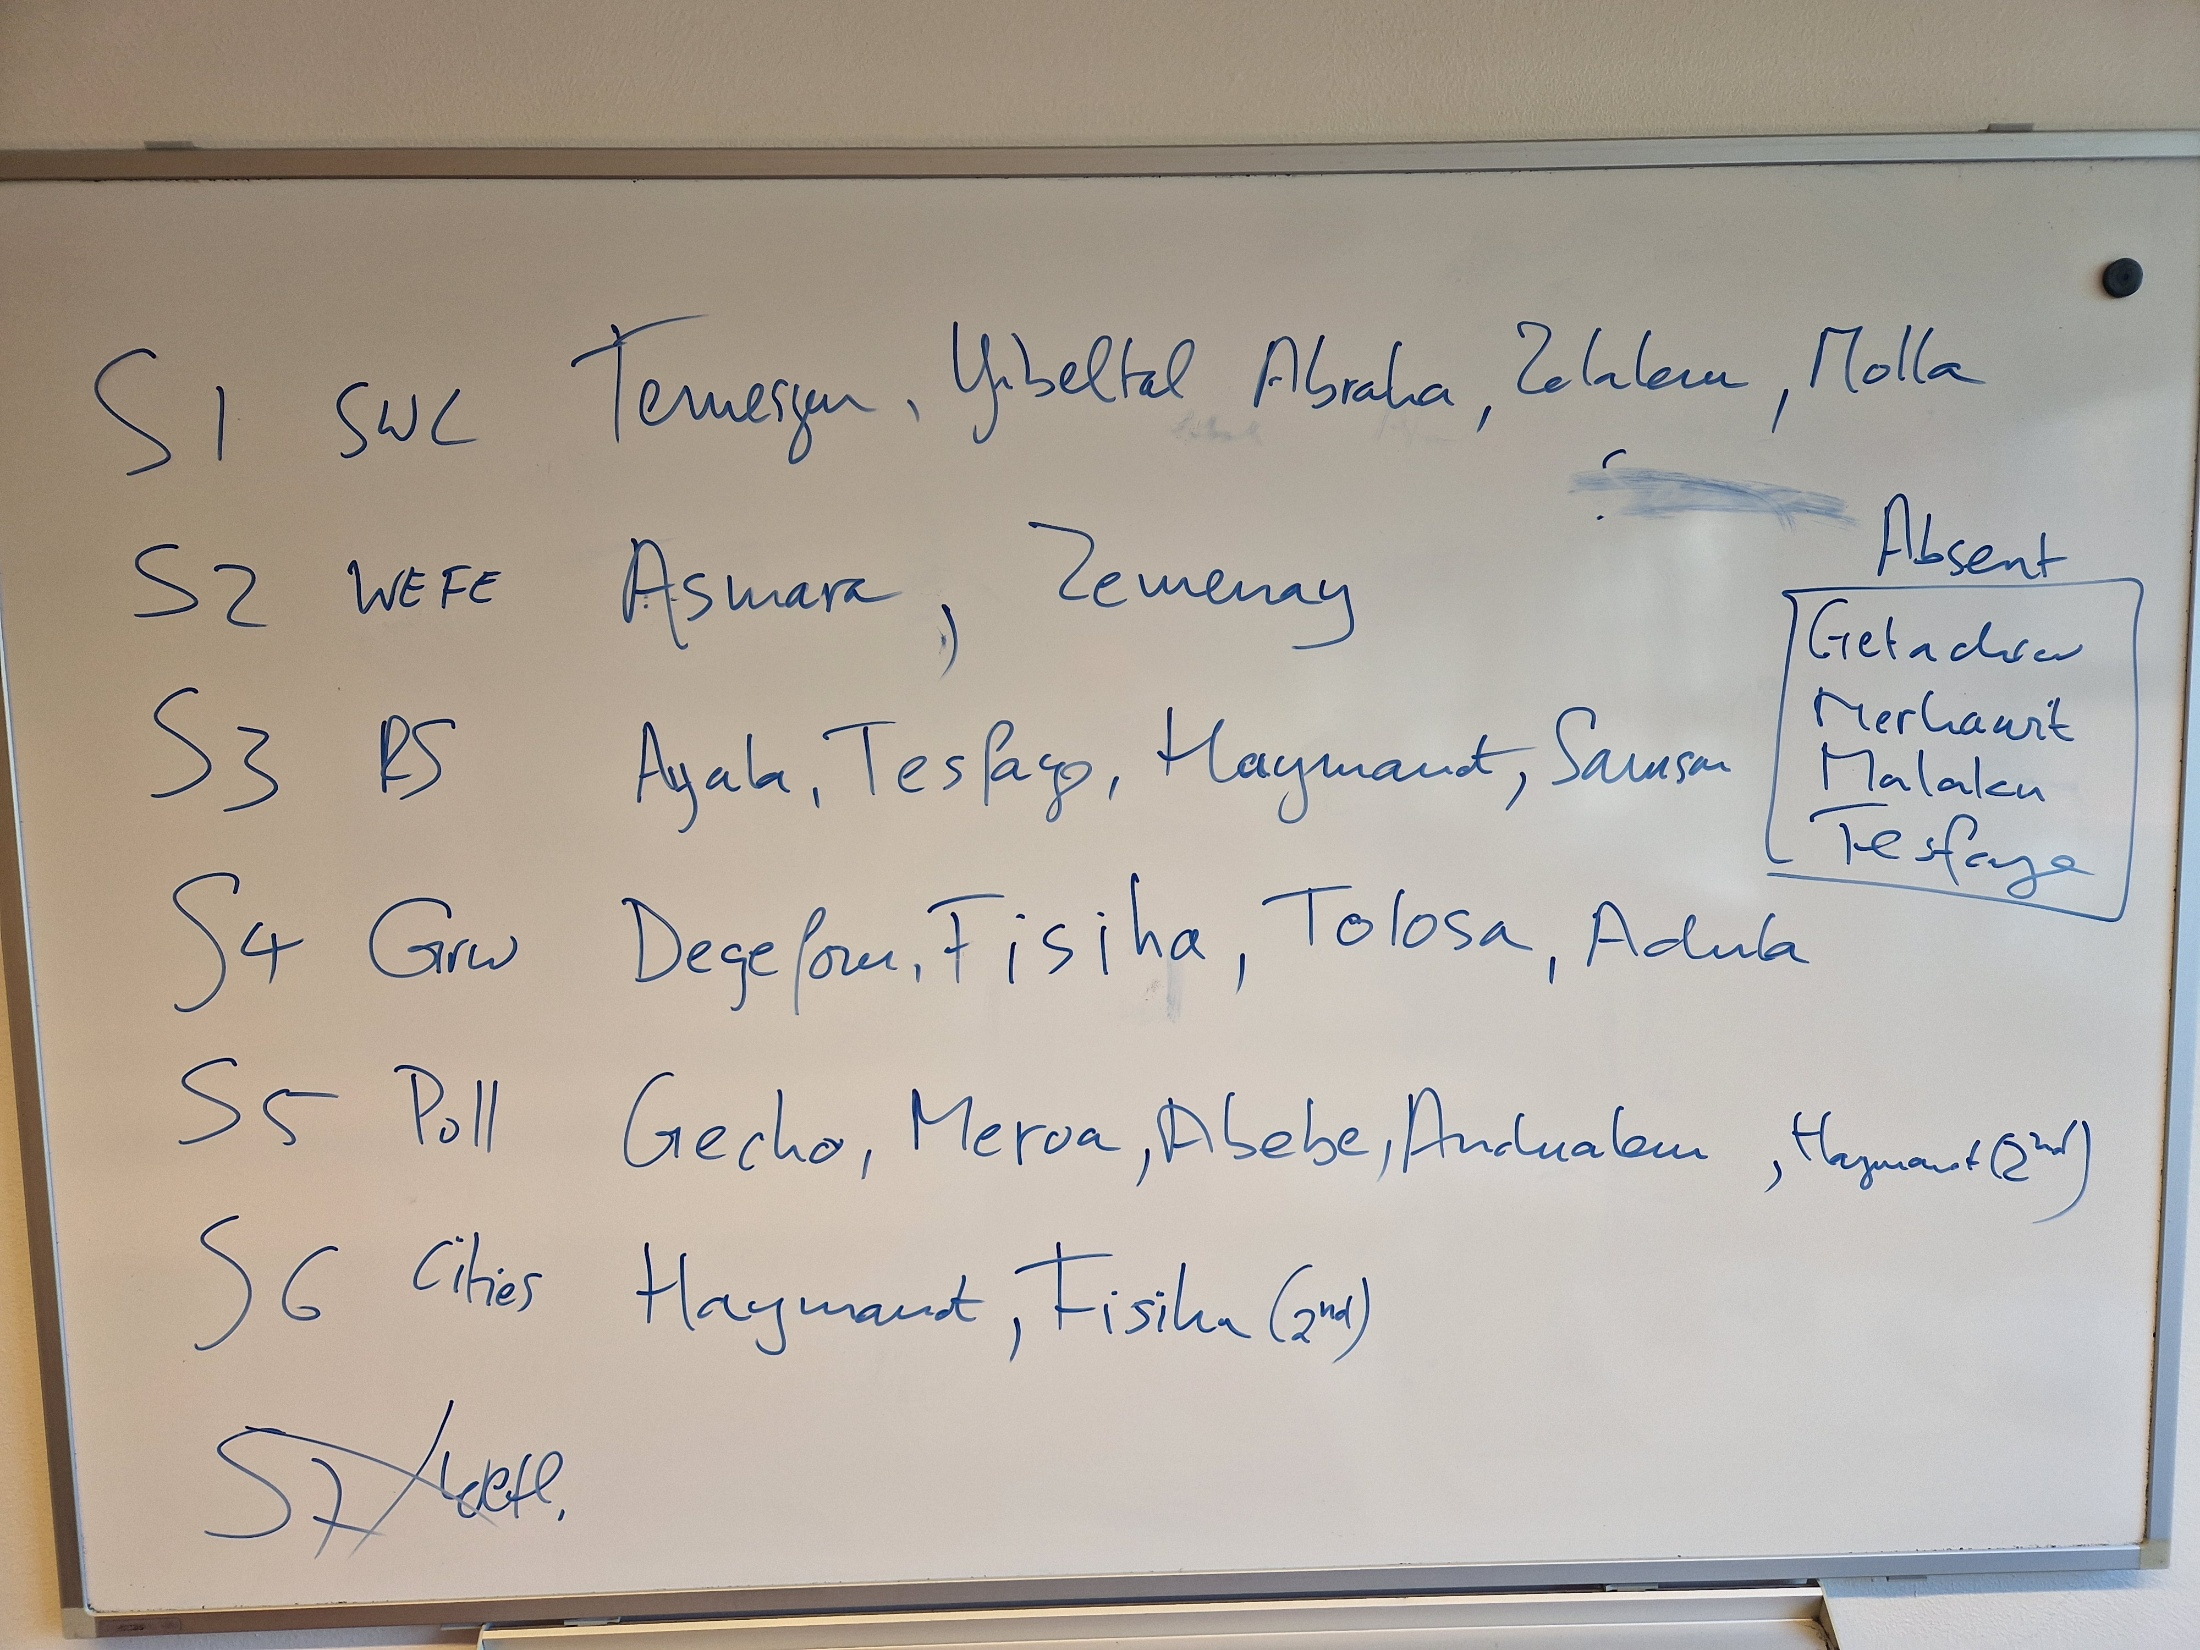 S1 SWC Temesgen, Yibeltal Abraha, Zelalem, Molla
S2 WEFE Asmara, Zemenay
S3 RS Ayala, Tesfaye, Haymanot, Samson
S4 Grw Degefom, Fisiha, Tolosa, Adula
S5 Poll Gecho, Meroa, Abebe, Andualem, Haymanot (2nd)
S6 Cities Haymanot, Fisiha (2nd)
S7
Absent
Getachew
Merhawit
Malaku
Tesfaye